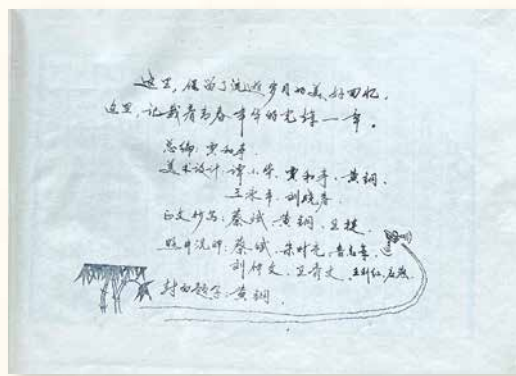 这里,保留了流逝岁月的美好回忆,
这里,记载着青春年华的光辉一年。
总编:贾和平.
美术设计:谭小华、贾和平、黄钢、
王永平、刘晓春
正文抄写:蔡斌、黄钢、吴捷、
照片洗印:蔡斌、朱时光、
刘仲文、
封面题字:黄钢.